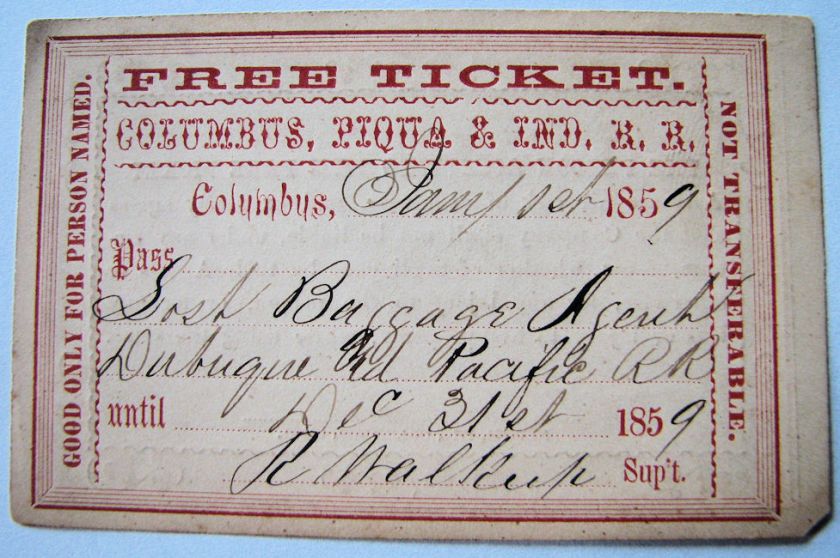 FREE TICKET.
COLUMBUS, PIQUA & IND. R. R.
Columbus, Jany 1st 1859
Pass
Lost Baggage Agent
Dubuque Pacific RR
until Dec 31st 1859
R Walkup Sup't.
GOOD ONLY FOR PERSON NAMED.
NOT TRANSFERABLE.